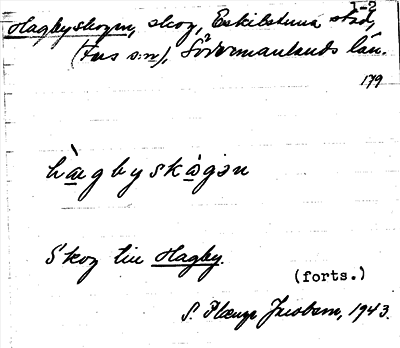 1-2
Hagbyskogen, skog, Eskilstuna stad,
(Fors s:n), Södermanlands län.
179
hà̱gbyskò̱gən
Skog till Hagby.
(forts.)
S. Plænge Jacobson, 1943.